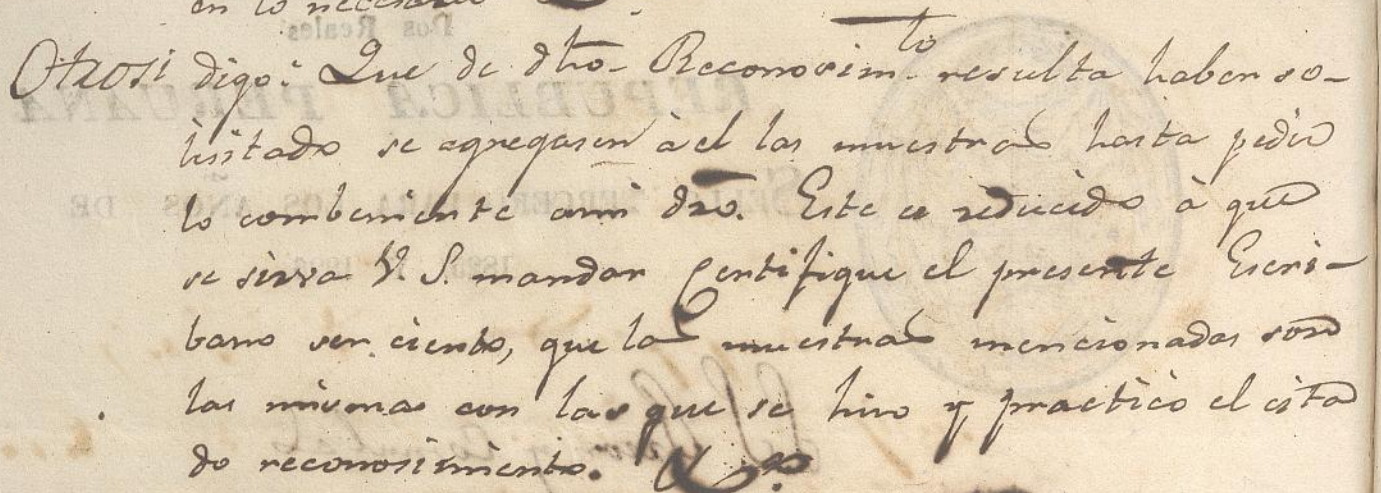 en lo necesario
Otrosi digo: Que de dho. Reconosim.to resulta haber so-
lisitado se agregasen à el las muestras hasta pedir
lo combeniente ami dro. Este es reducido à que
se sirva V. S. mandar Certifique el presente Escri-
bano ser cierto, que las muestras mencionadas son
las mismas con las que se hiso y practicó el cita
do reconosimiento.